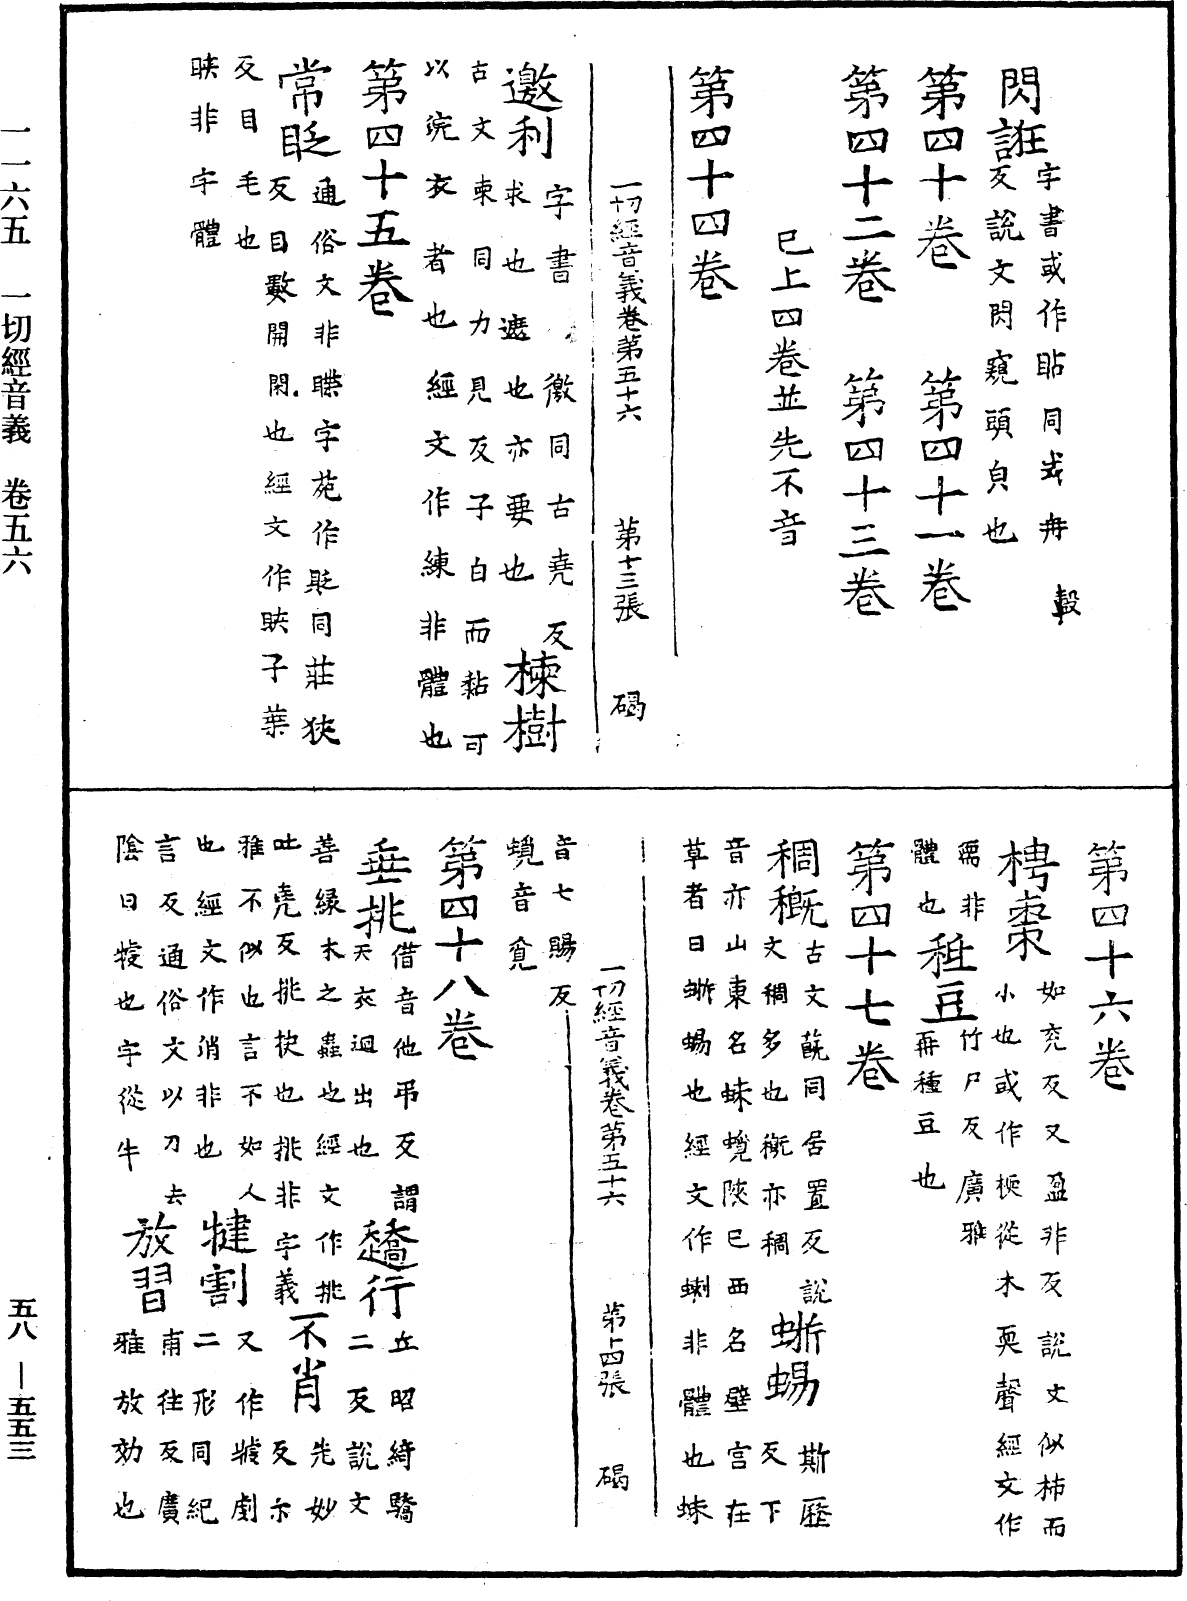 閃誑字書或作貼同式冉
反說文閃窺頭皃也
第四十卷 第四十一卷
第四十二卷 第四十三卷
已上四卷並先不音
第四十四卷
一切經音義卷第五十六 第十三張 碣
邀利字書 徼同古堯反
求也遮也亦要也 楝樹
古文柬同力見反子白而黏可
以浣衣者也經文作練非體也
第四十五卷
常眨通俗文非䁋字苑作眨同莊狹
反目數開閉也經文作䀹子葉
反目毛也
䀹非字體
第四十六卷
梬棗如兗反又盈非反說文似柿而
小也或作㮕從木耎聲經文作
濡非
體也 稚豆竹尸反廣雅
再種豆也
第四十七卷
稠穊古文蔇同居置反說
文稠多也穊亦稠 蜥蜴斯歷
反下
音亦山東名蝀蟧陝已西名壁宮在
草者曰蜥蜴也經文作蝲非體也蝀
一切經音義卷第五十六 第十四張 碣
音七賜反
蟧音覓
第四十八卷
垂挑借音他弔反謂
天衣迴出也 趫行丘昭綺驕
二反說文
善緣木之蟲也經文作挑
吐堯反挑抉也挑非字義 不肖先妙
反尒
雅不似也言不如人
也經文作消非也 犍割又作㸿劇
二形同紀
言反通俗文以刀去
陰曰犍也字從牛 放習甫往反廣
雅放効也
一一六五 一切經音義 卷五六
五八—五五三